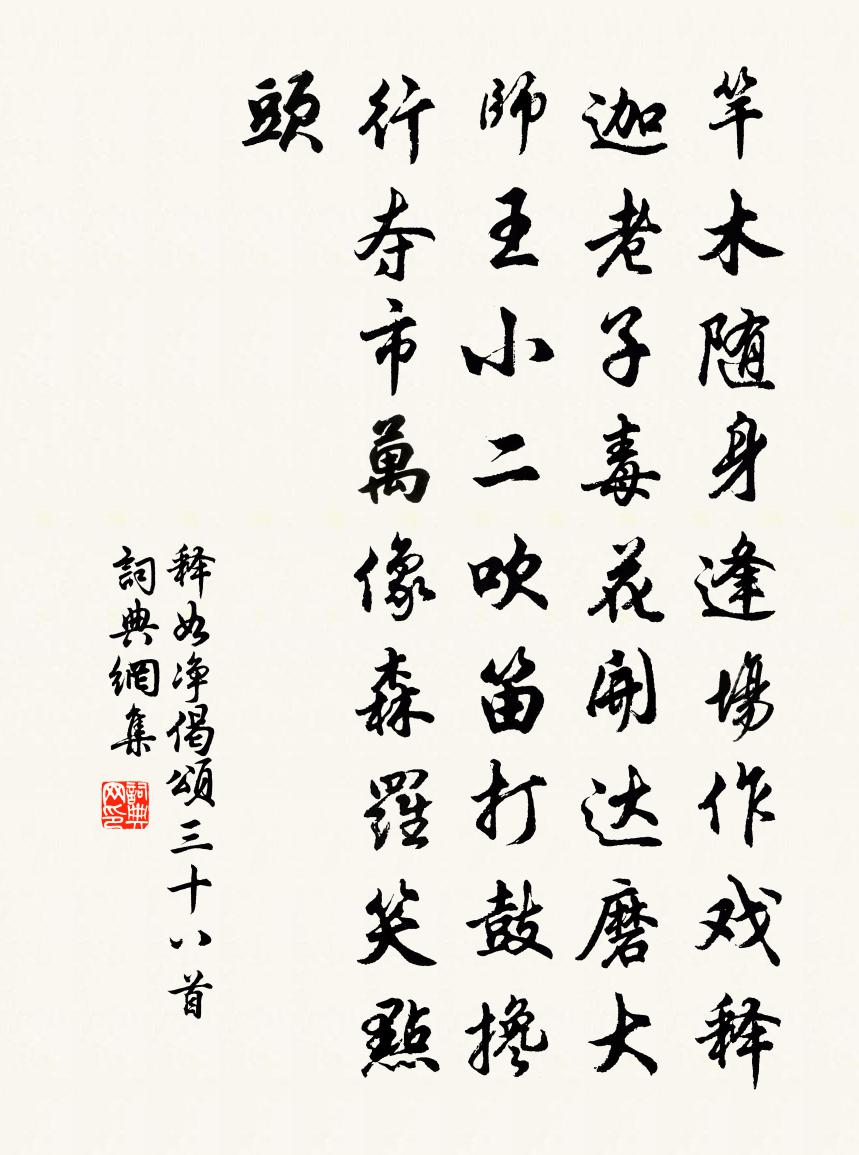 竿木随身逢場作戏释
迦老子毒花開达磨大
師王小二吹笛打鼓搀
行夺市萬像森羅笑點
頭
释如净偈頌三十八首
詞典網集
詞典网印